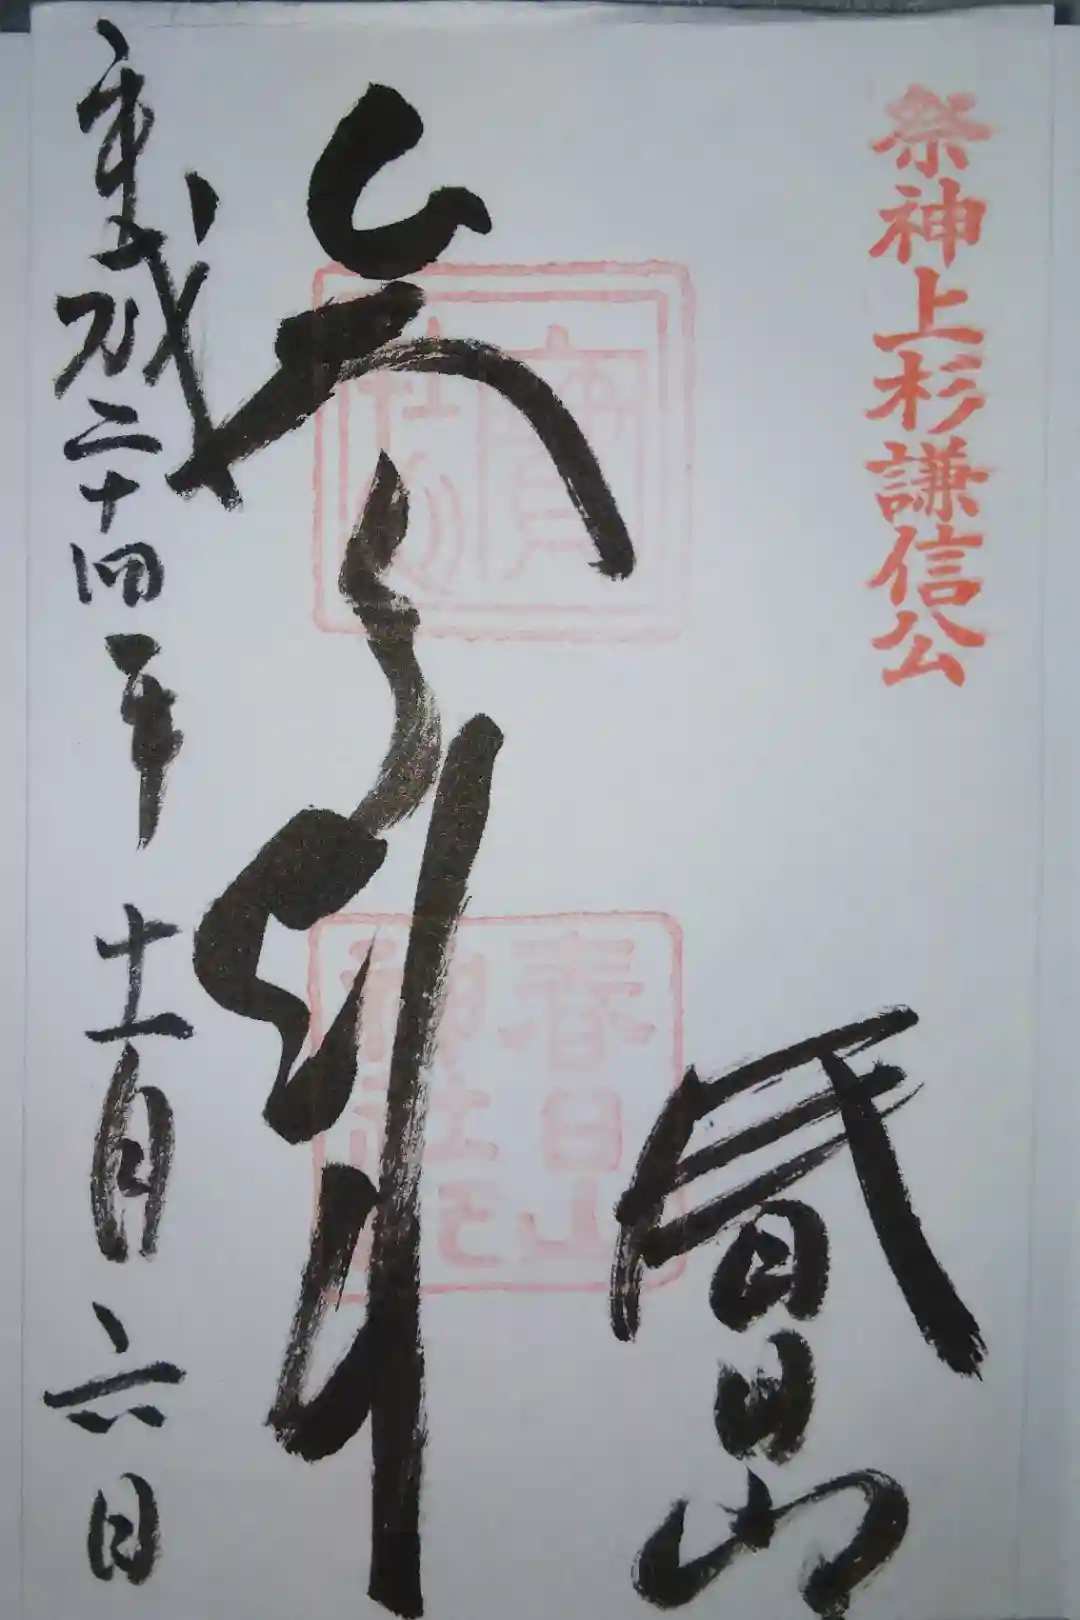 祭神上杉謙信公
春日山
春日山
神社
参拝
平成二十四年十一月六日